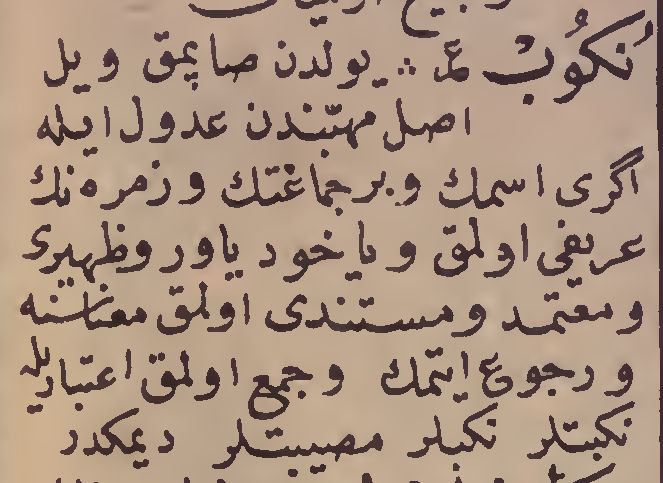 نُكُوبْ عۤ ؞ يولدن صاپمق و يل
اصل مهبّندن عدول ايله
اگرى اسمك و بر جماعتك و زمره نك
عريفى اولمق و ياخود ياور و ظهيرى
و معتمد و مستندى اولمق معناسنه
و رجوع ايتمك و جمع اولمق اعتباريله
نكبتلر نكبلر مصيبتلر ديمكدر